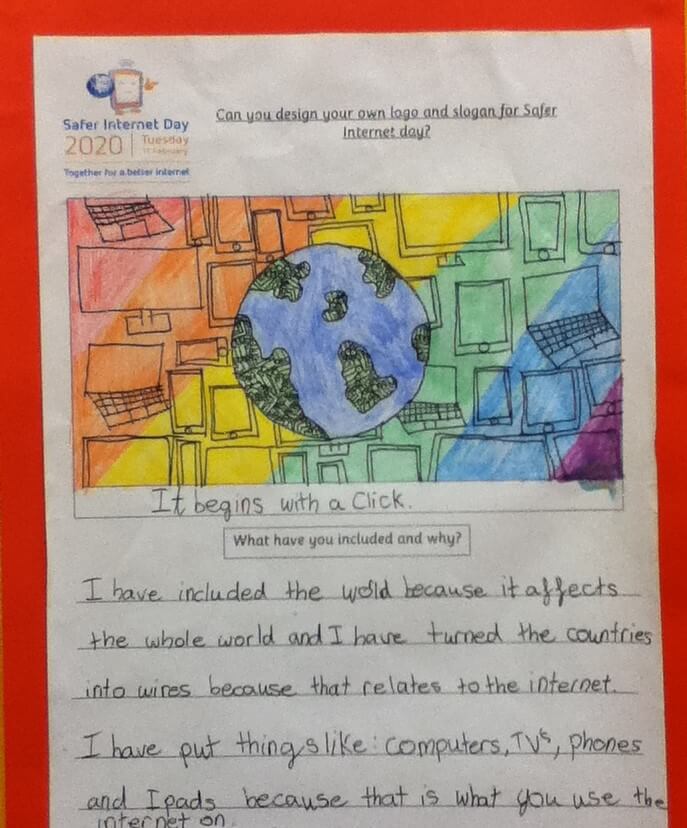 Safer Internet Day
2020 | Tuesday
11 February
Together for a better internet
Can you design your own logo and slogan for Safer
Internet day?
It begins with a Click.
What have you included and why?
I have included the world because it affects
the whole world and I have turned the countries
into wires because that relates to the internet.
I have put things like: computers, TVs, phones
and Ipads because that is what you use the
internet on.